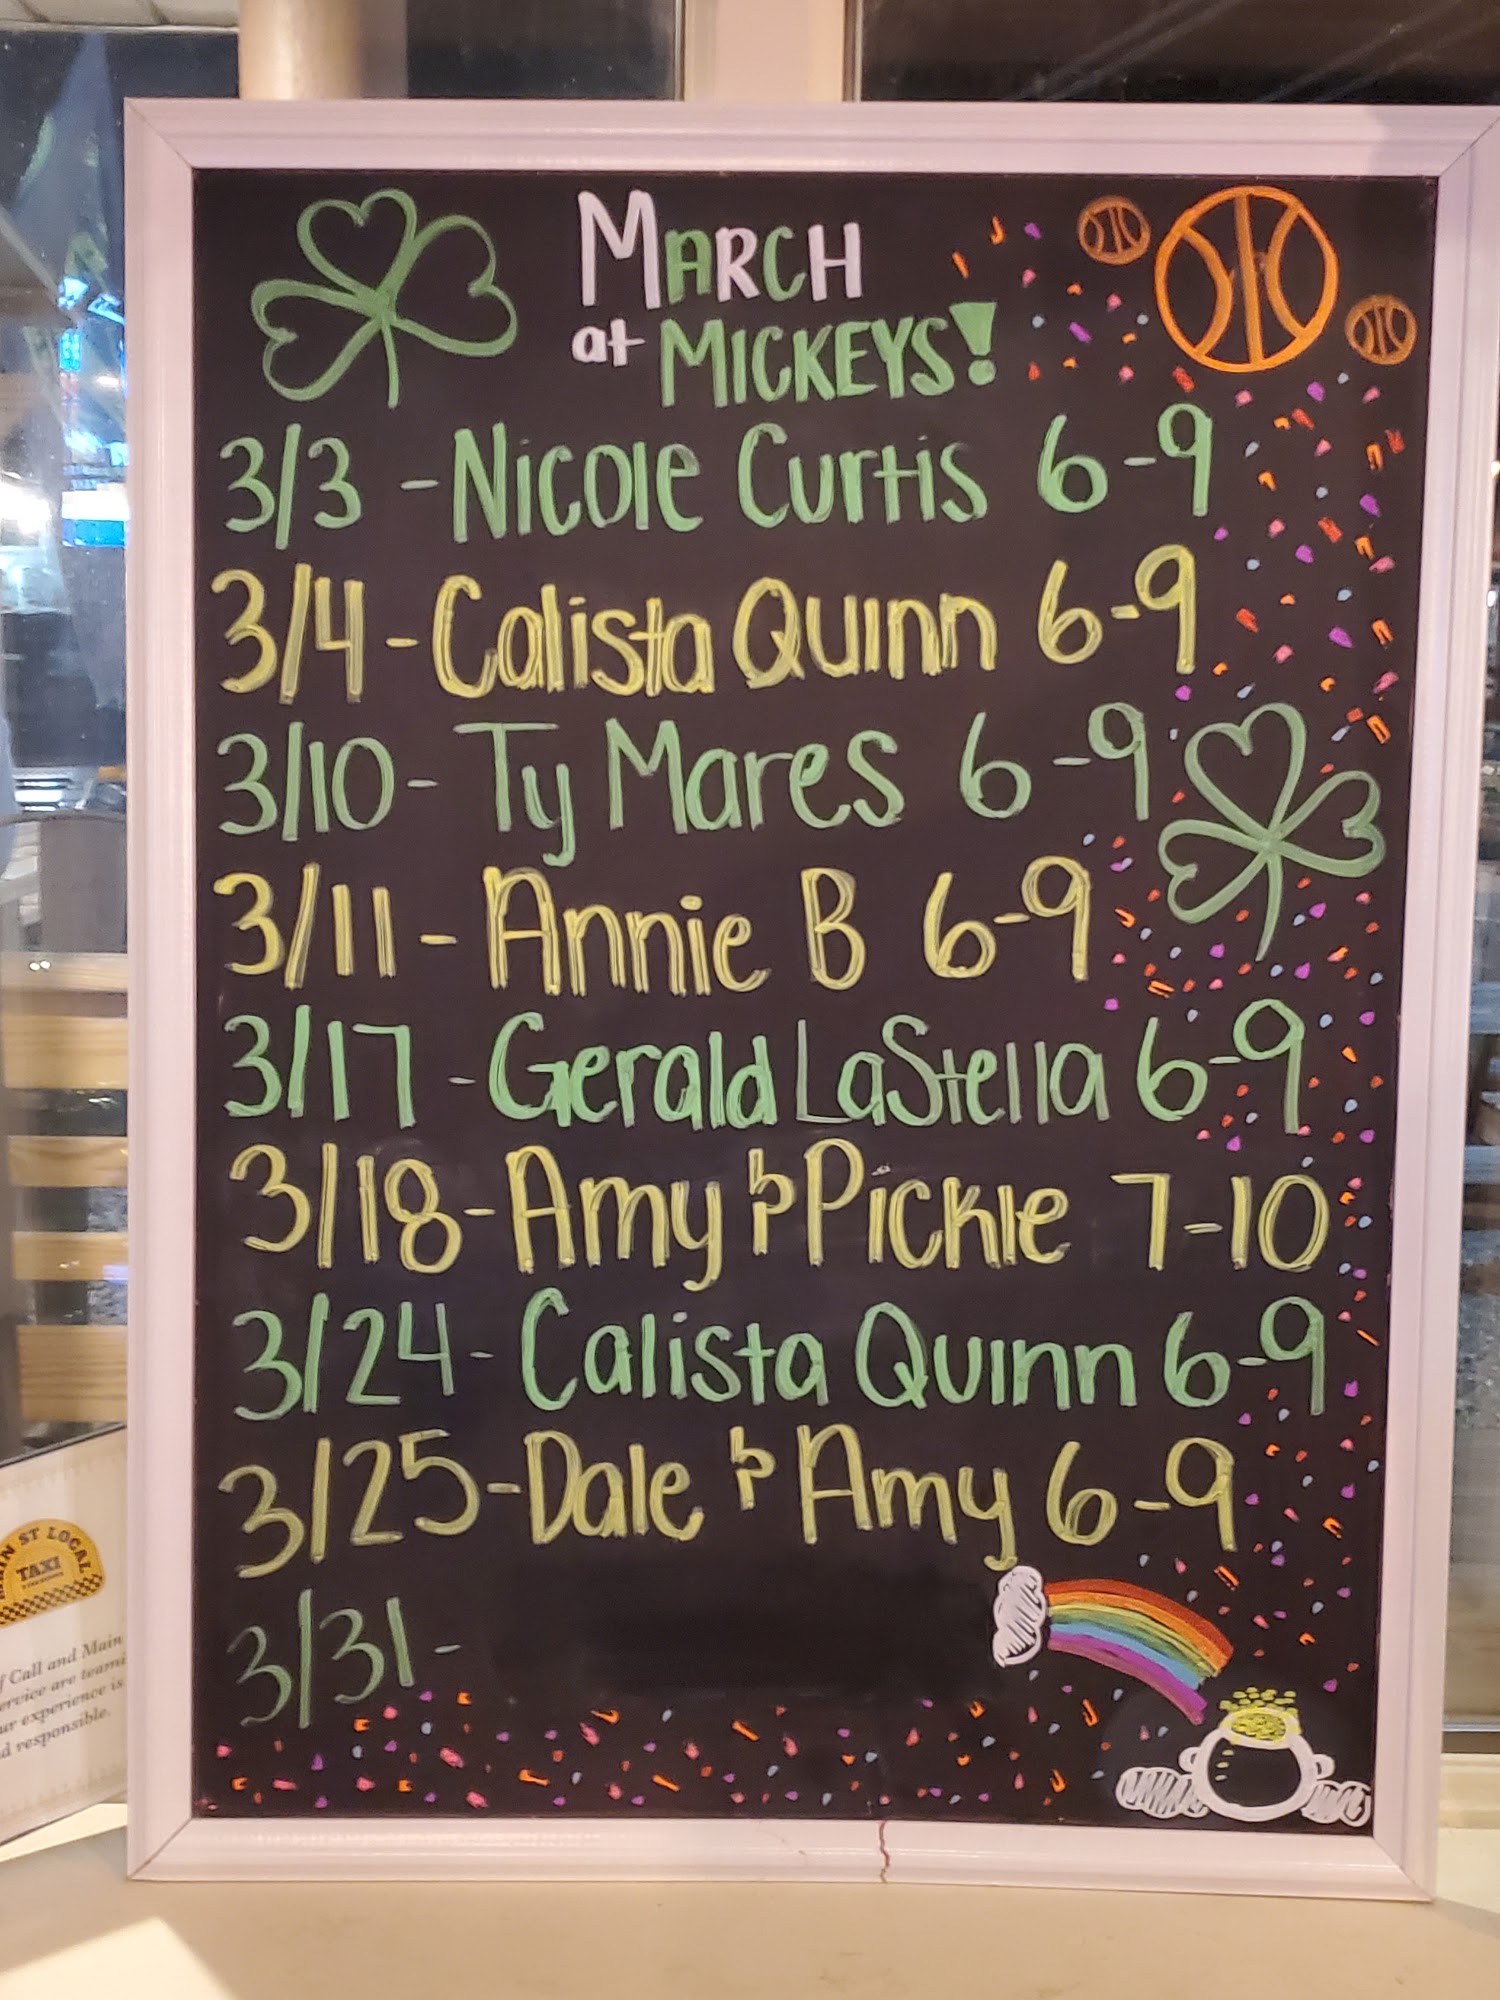 MARCH
at MICKEYS!
3/3 - Nicole Curtis 6-9
3/4 - Calista Quinn 6-9
3/10 - Ty Mares 6-9
3/11 - Annie B 6-9
3/17 - Gerald LaStella 6-9
3/18 - Amy & Pickle 7-10
3/24 - Calista Quinn 6-9
3/25 - Dale & Amy 6-9
3/31 -
ST LOCAL
TAXI
Call and Main
are
experience is
responsible.